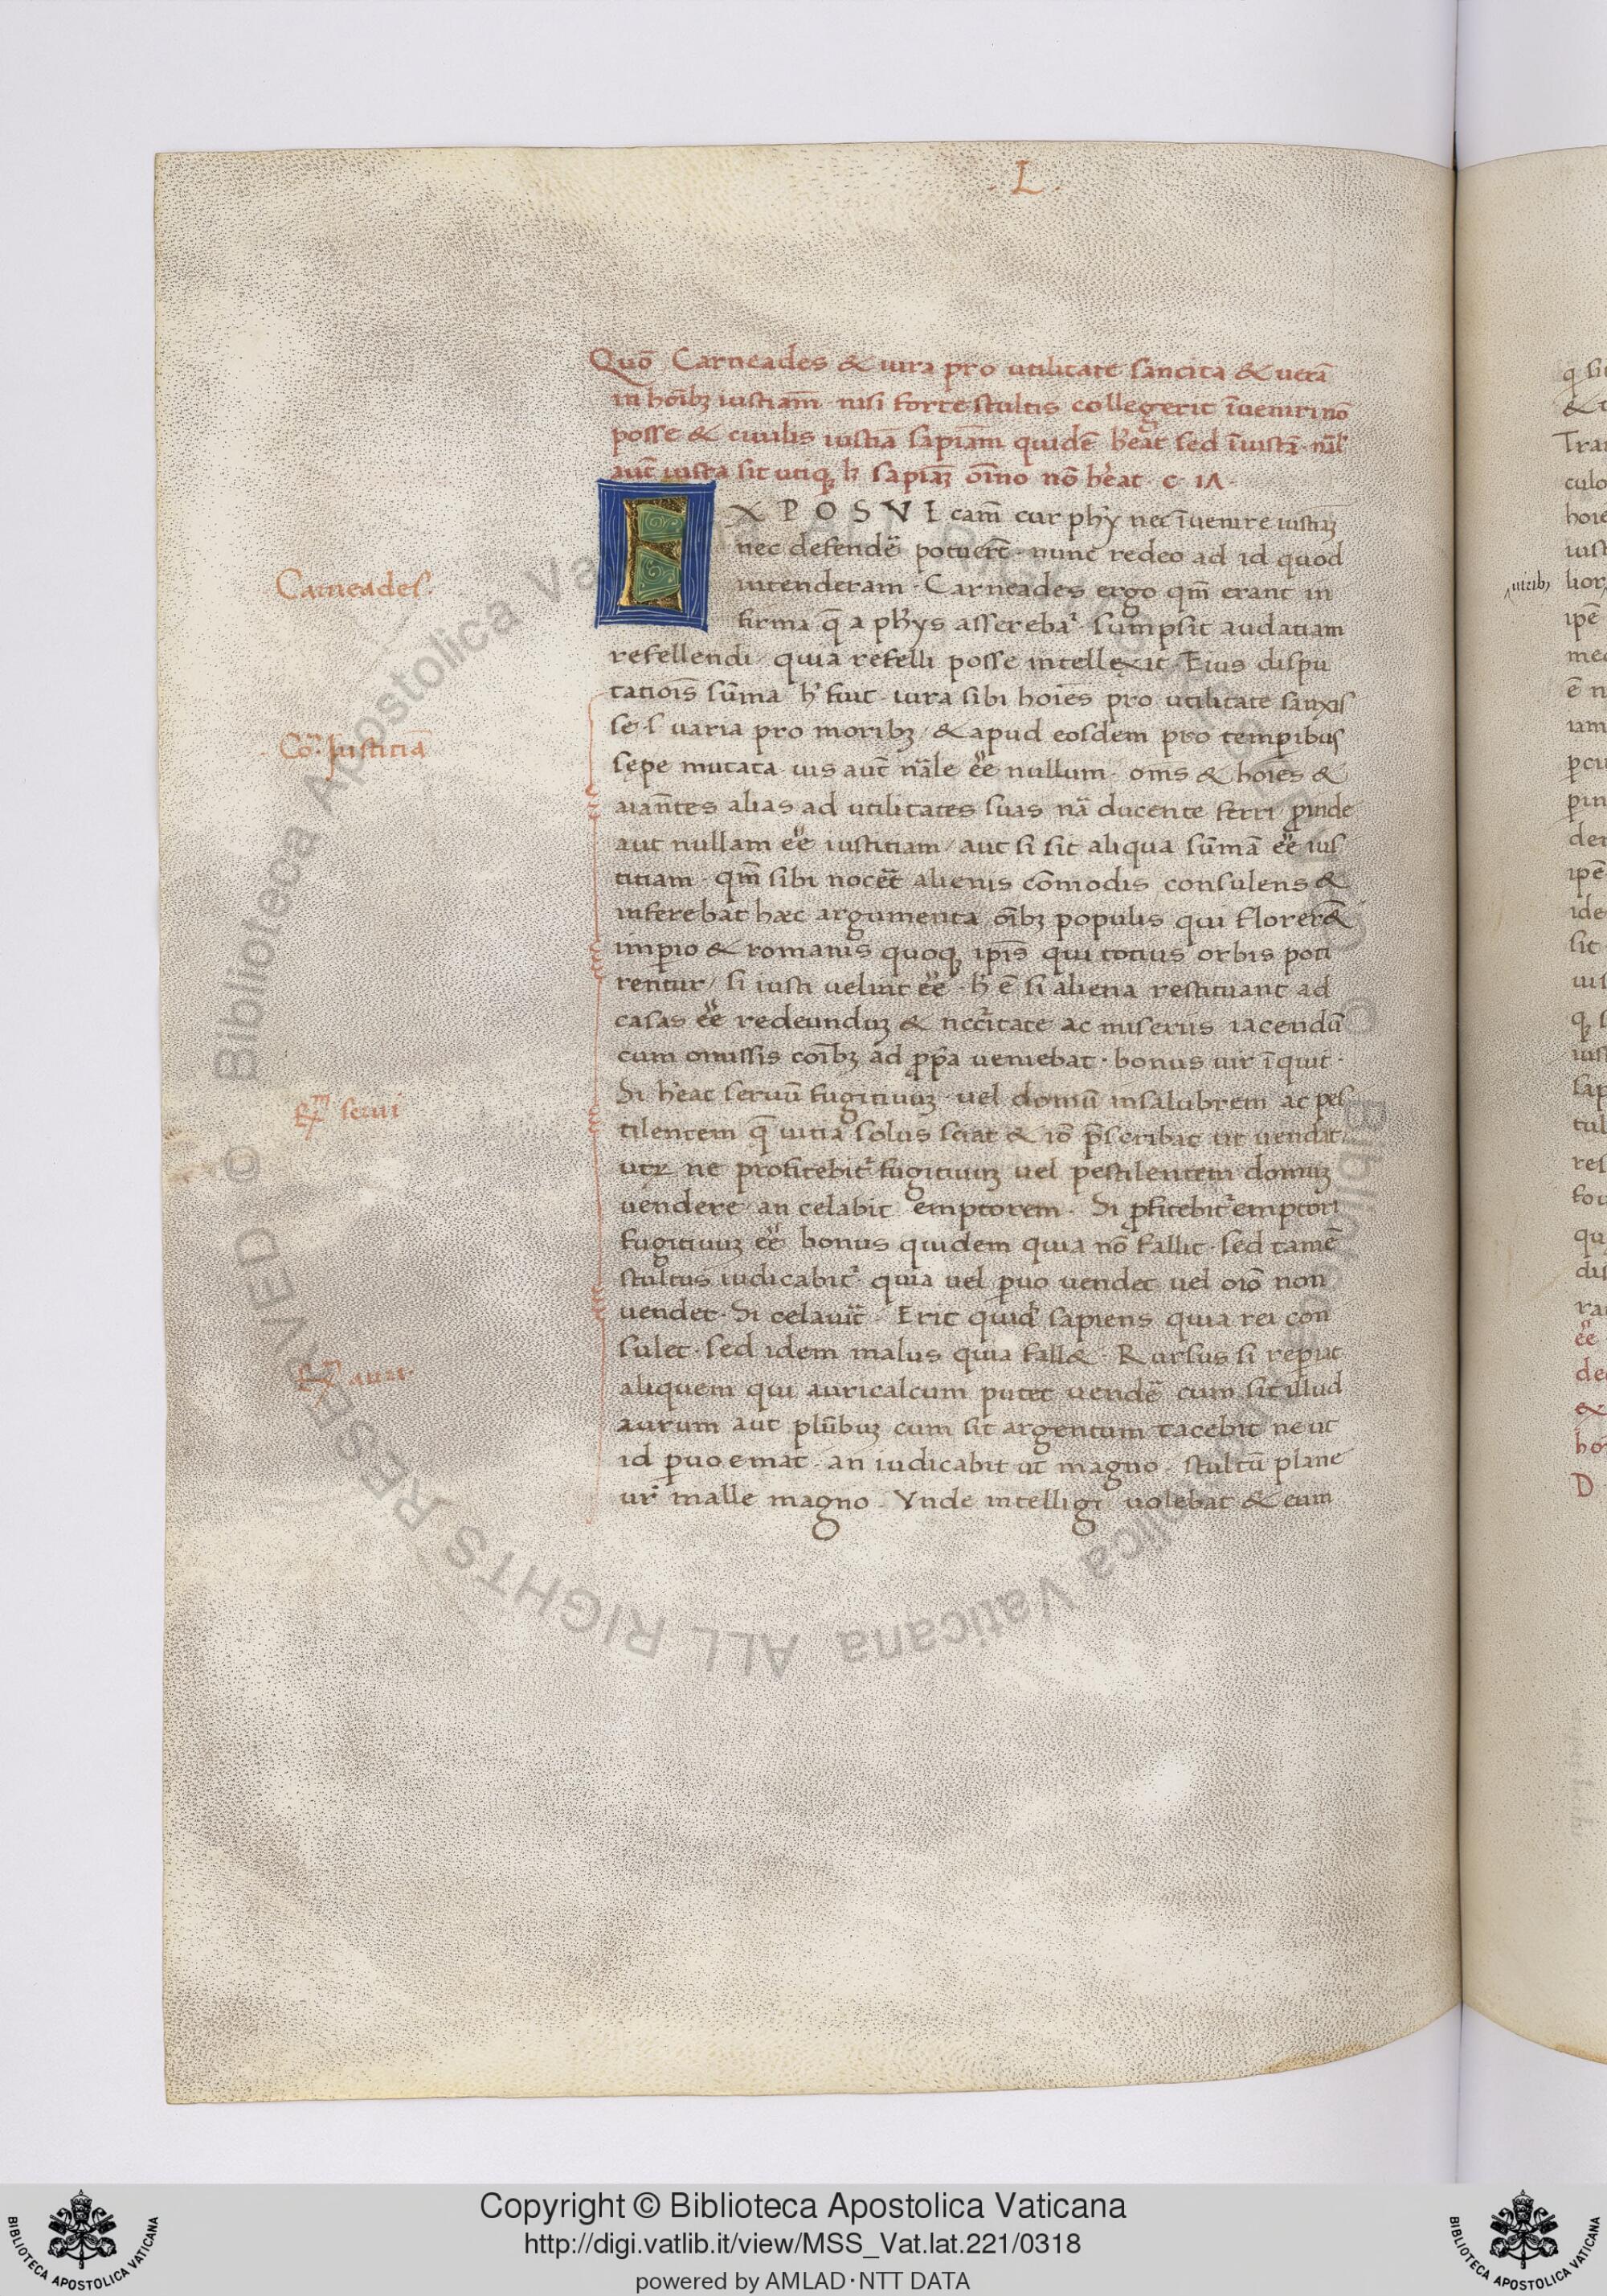 · L ·
Quō Carneades & iura pro utilitate sancita & uerā
in hōībꝫ iustiam̄ nisi forte stultis collegerit īuenirī nō
posse & ciuilis iustiā sapiam̄ quidē h̄eat sed īiustā · nāl'
aut̄ iusta sit utiqꝫ lꝫ sapiaꝫ oīno nō h̄eat · c · 17 ·
EXPOSVI cam̄ cur ph̄y nec īuenire iustiaꝫ
nec defendē potuert̄ · nunc redeo ad id quod
intenderam · Carneades ergo qm̄ erant in
firma q̄ a ph̄ys asserebat̄ · sumpsit audatiam
refellendi / quia refelli posse intellexit · Eius dispu
tatiōis sūma h̄ fuit · iura sibi hoīes pro utilitate sanxis
se · s' uaria pro moribꝫ / & apud eosdem pro temp̄ibus
sepe mutata · ius aut̄ nāle ēe nullum · oms̄ & hoīes &
aīantes alias ad utilitates suas nā ducente ferri / ꝓinde
aut nullam ēe iustitiam / aut si sit aliqua sūmā ēe ius
titiam · qm̄ sibi nocēt alienis cōmodis consulens &
inferebat haec argumenta oībꝫ populis qui florer&
imp̄io & romanis quoqꝫ ip̄is qui totius orbis poti
rentur / si iusti uelint ēe · h̄ ē si aliena restituant ad
casas ēe redeunduꝫ & necc̄itate ac miseriis iacendū
cum omissis coībꝫ ad ꝓpa ueniebat · bonus uir īquit ·
Si h̄eat seruū fugitiuuꝫ uel domū insalubrem ac pes
tilentem q̄ uitia solus sciat & iō p̄scribat ut uendat /
utꝝ ne profitebit̄ fugitiuuꝫ uel pestilentem domuꝫ
uendere an celabit emptorem · Si ꝓfitebit̄ emptori
fugitiuuꝫ ēe bonus quidem quia nō fallit · sed tamē
stultus iudicabit̄ · quia uel ꝑuo uendet uel oīo non
uendet · Si celauit̄ · Erit quid' sapiens quia rei con
sulet · sed idem malus quia fall& · Rursus si rep̄iat
aliquem qui auricalcum putet uendē cum sit illud
aurum aut plūbuꝫ cum sit argentum tacebit ne ut
id ꝑuo emat · an iudicabit ut magno · stultū plane
ur̄ malle magno · Vnde intelligi uolebat & eum
Carneades ·
· Cō · Iustitiā
Exm serui
Exm auri ·
uirib'
Copyright © Biblioteca Apostolica Vaticana
http://digi.vatlib.it/view/MSS_Vat.lat.221/0318
powered by AMLAD·NTT DATA
BIBLIOTECA APOSTOLICA VATICANA
BIBLIOTECA APOSTOLICA VATICANA
© Biblioteca Apostolica Vaticana ALL RIGHTS RESERVED